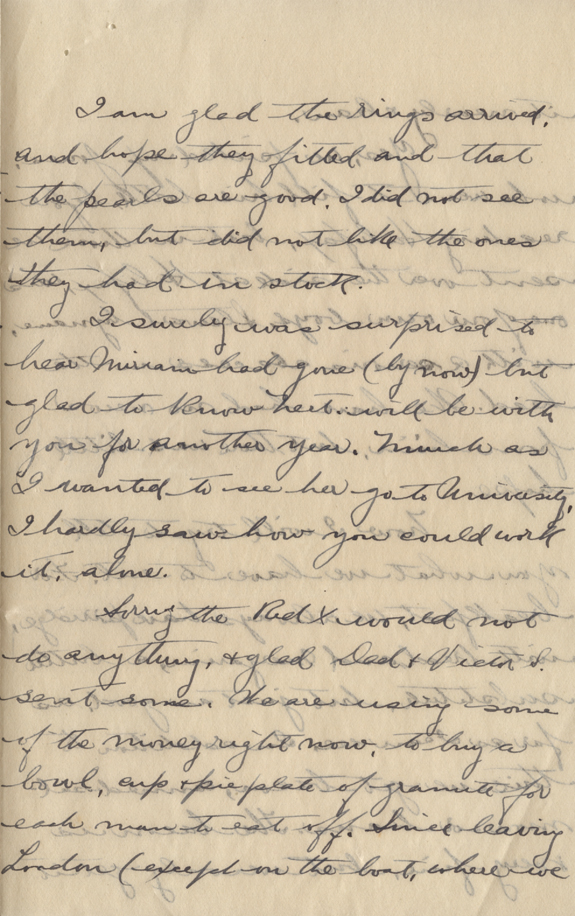 I am glad the rings arrived,
and hope they fitted and that
the pearls are good. I did not see
them, but did not like the ones
they had in stock.
I surely was surprised to
hear Miriam had gone (by now) but
glad to know will be with
you for another year. Much as
I wanted to see her go to University,
I hardly saw how you could work
it, alone.
Sorry the Red X would not
do anything, & glad Dad & Victor S.
sent some. We are using some
of the money right now, to buy a
bowl, cup & pie plate of granite for
each man to eat off. Since leaving
London (except on the boat, where we